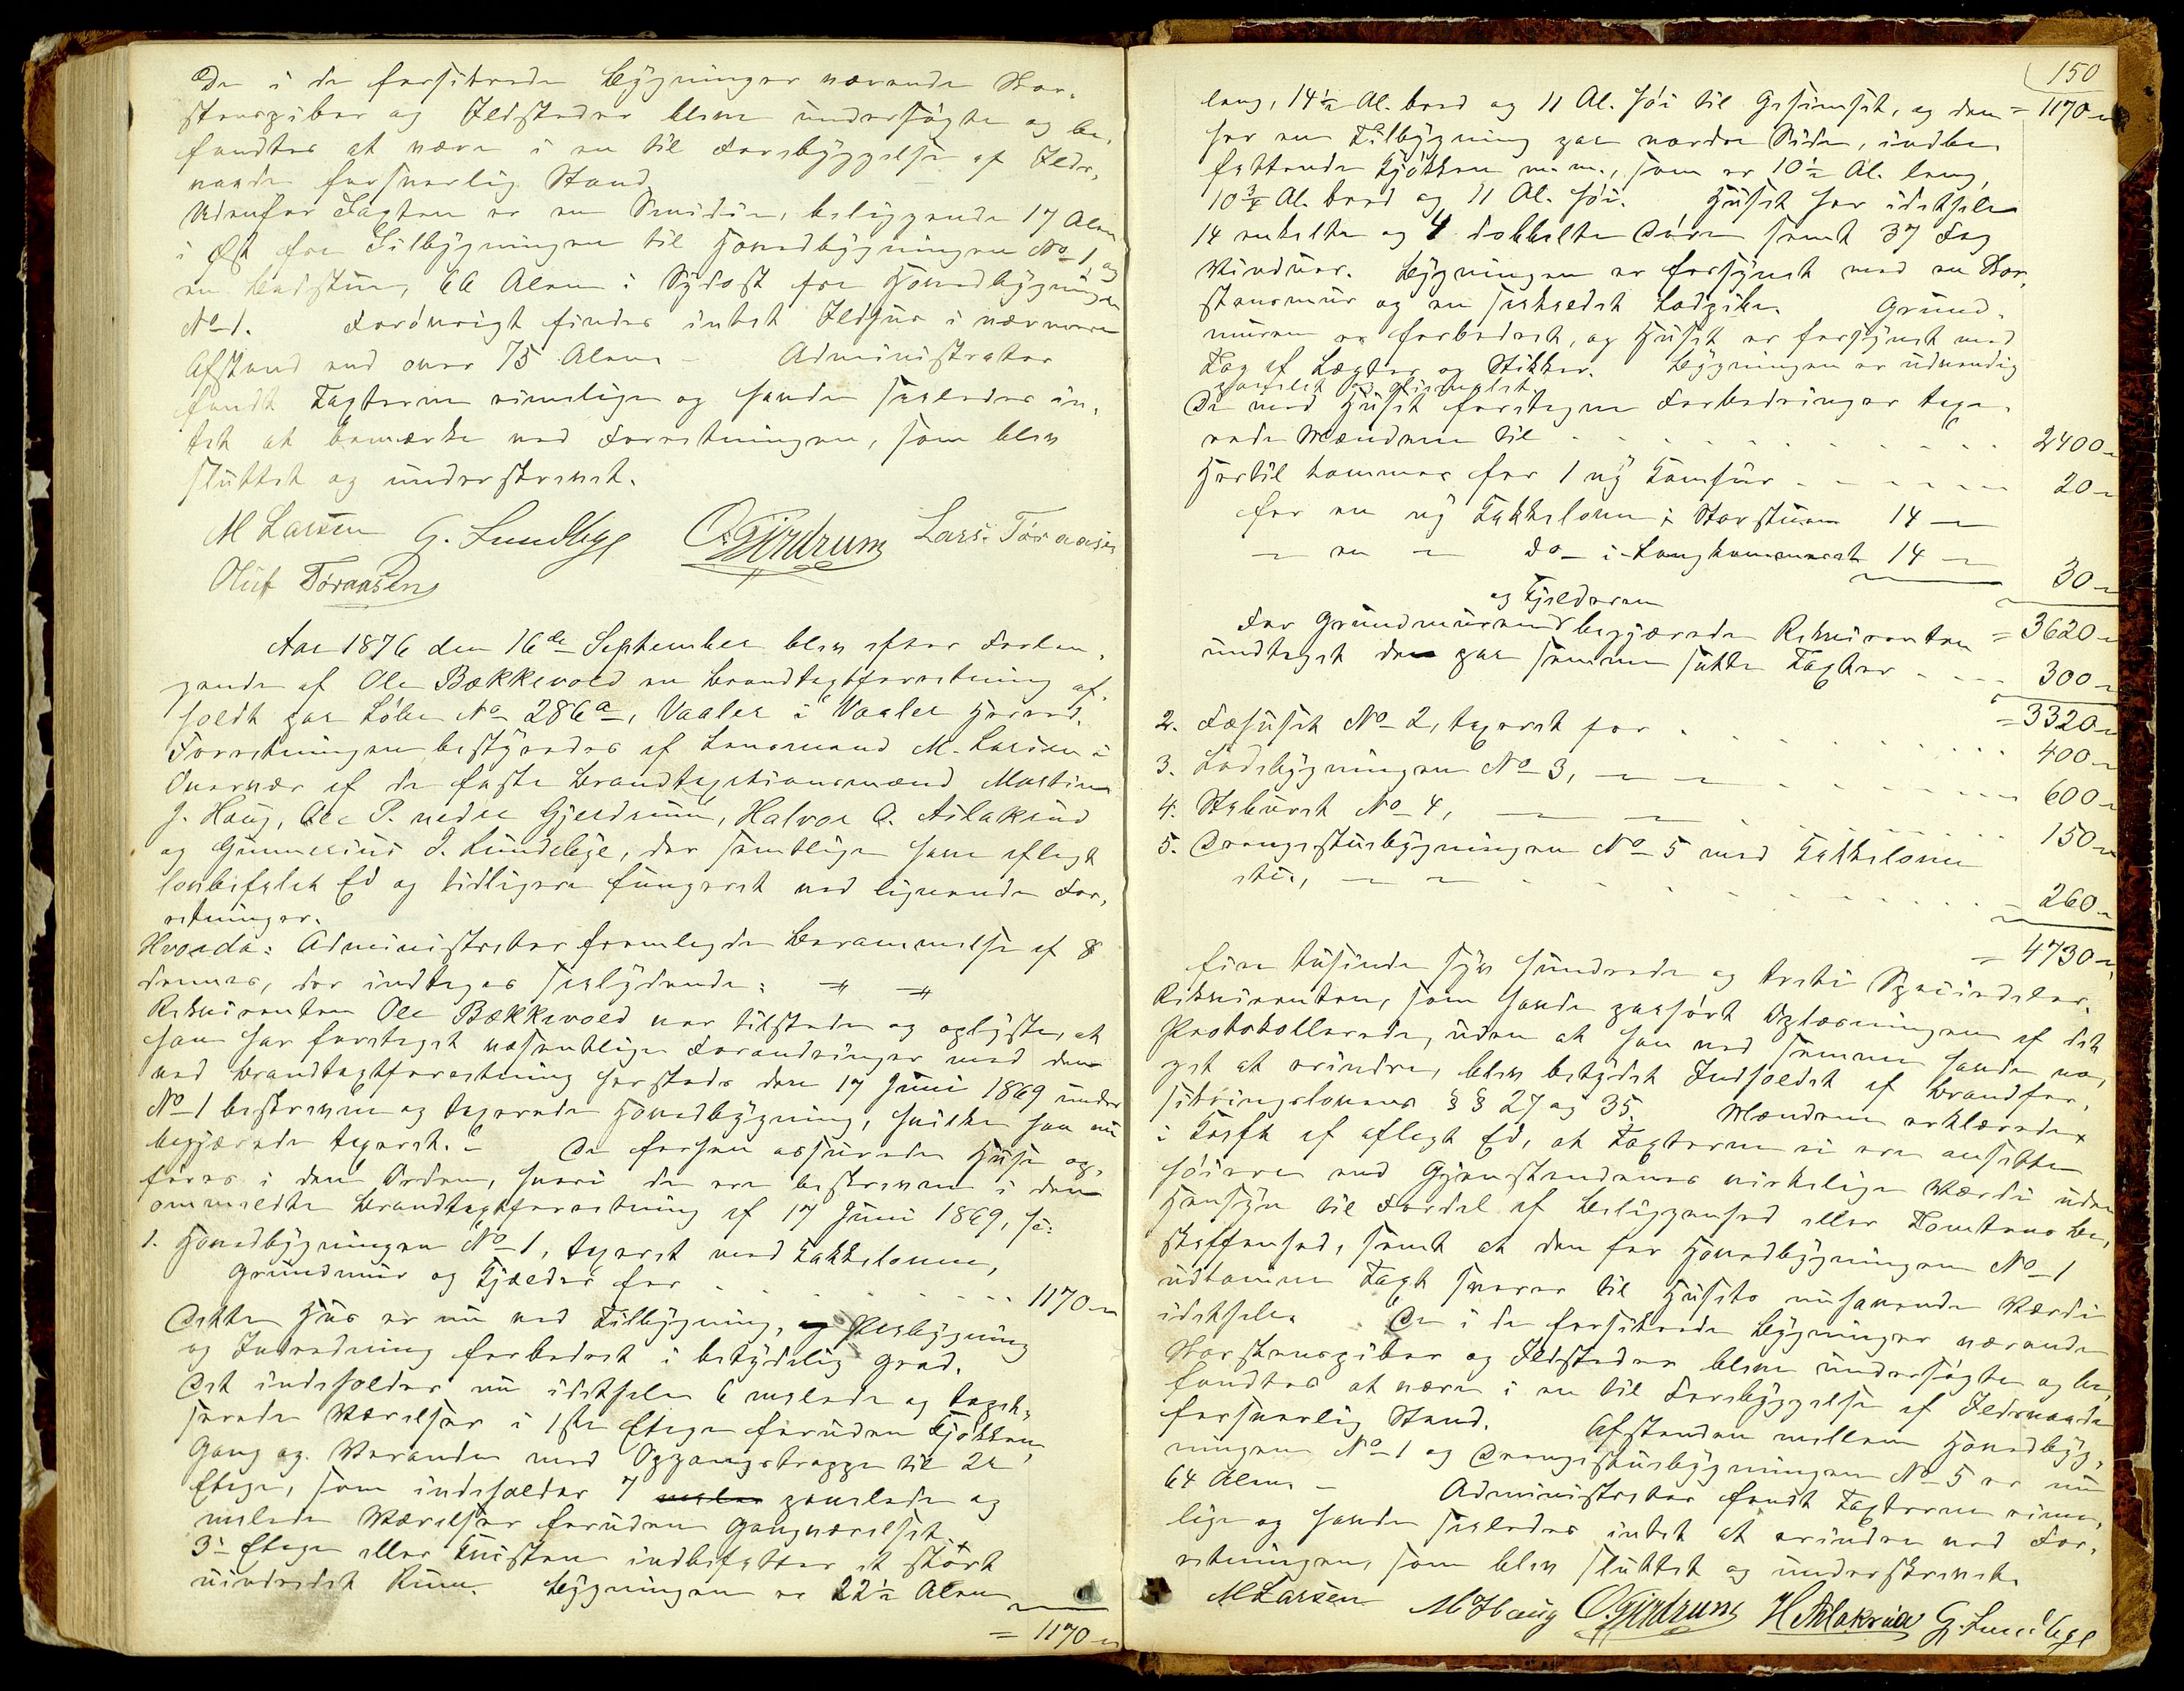 De i de forsikrede Bygninger værende Skor-
stenspiber og Ildsteder bleve undersøgte og be-
fandtes at være i en til Forebyggelse af Ilds-
vaade forsvarlig Stand
Udenfor Taxten er en Smidie, beliggende 17 Alen
i Øst for Tilbygningen til Hovedbygningen No 1, og
en Badstue, 66 Alen i Sydost for Hovedbygningen
No 1. Forøvrigt findes intet Ildhus i nærmere
Afstand end over 75 Alen – Administrator
fandt Taxterne rimelige og havde saaledes in-
tet at bemærke ved Forretningen, som blev
sluttet og underskrevet.
M Larsen G. Lundbye O. Gjerdrum Lars Toraasen
Oluf Toraasen
Aar 1876 den 16de September blev efter Forlan-
gende af Ole Bækkevold en Brandtaxtforretning af-
holdt paa Løbe No 286a, Vaaler i Vaaler Herred.
Forretningen bestyredes af Lensmand M. Larsen i
Overvær af de faste Brandtaxationsmænd Martin
J. Haug, Ole P. nedre Gjerdrum, Halvor O. Aslakrud
og Gunnerius I. Lundebye, der samtlige have aflagt
lovbefalet Ed og tidligere fungeret ved lignende For-
retninger.
Hvorda: Administrator fremlagde Berammelse af 8
dennes, der indtages saalydende: –//– –//–
Rekvirenten Ole Bækkevold var tilstede og oplyste, at
han har foretaget væsentlige Forandringer med den
ved Brandtaxtforretning hersteds den 17 Juni 1869 under
No 1 beskrevne og taxerede Hovedbygning, hvilken han nu
begjærede taxeret. – De forhen assurerede Huse op-
føres i den Orden, hvori de ere beskrevne i den
ommeldte Brandtaxtforretning af 17 Juni 1869, sc:
1. Hovedbygningen No 1, taxeret med Kakkelovne,
Grundmur og Kjælder for . . . . . . . . 1170 –
Dette Hus er nu ved Tilbygning, og Paabygning
og Indredning forbedret i betydelig Grad.
Det indeholder nu idethele 6 malede og tapet-
serede Værelser i 1ste Etage foruden Kjøkken,
Gang og Veranda med Opgangstrappe til 2n
Etage, som indeholder 7 malede panelede og
malede Værelser foruden Gangværelset.
3die Etage eller Kvisten indbefatter et stort
uindredet Rum. Bygningen er 22½ Alen
= 1170 –
150
lang, 14½ Al. bred og 11 Al. høi til Gesimset, og den = 1170 –
har en Tilbygning paa nordre Side, indbe-
fattende Kjøkken m. m., som er 10½ Al. lang,
10¾ Al. bred og 11 Al. høi. Huset har idethele
14 enkelte og 4 dobbelte Døre samt 37 Fag
Vinduer. Bygningen er forsynet med en Skor-
stensmur og en saakaldet Ladpibe. Grund-
muren er forbedret, og Huset er forsynet med
Tag af Lægter og Stikker. Bygningen er udvendig
panelet og oliemalet.
De med Huset foretagne Forbedringer taxe-
rede Mændene til . . . . . . . . . . 2400 –
Hertil kommer for 1 ny Komfur . . . . . . 20 –
for en ny Kakkelovn i Storstuen 14 –
– en – do – i Langkammeret 14 –
30 –
og Kjelderen
For Grundmuren begjærede Rekvirenten = 3620 –
undtaget den paa samme satte Taxter . . . . 300 –
= 3320 –
2. Fæhuset No 2, taxeret for . . . . . . . . 400 –
3. Ladebygningen No 3, – – . . . . . . . 600 –
4. Stabburet No 4, – – . . . . . . . 150 –
5. Drengestubygningen No 5 med Kakkelovn
etc., – – . . . . . . . . . 260 –
= 4730 –
fire tusinde syv hundrede og treti Speciedaler.
Rekvirenten, som havde paahørt Oplæsningen af det
Protokollerede, uden at han ved samme havde no-
get at erindre, blev betydet Indholdet af Brandfor-
sikringslovens §§ 27 og 35. Mændene erklærede
i Kraft af aflagt Ed, at Taxterne ei ere ansatte
høiere end Gjenstandenes virkelige Værdi uden
Hensyn til Fordel af Beliggenhed eller Tomtens Be-
skaffenhed, samt at den for Hovedbygningen No 1
udkomne Taxt svarer til Husets nuhavende Værdi
idethele. De i de forsikrede Bygninger værende
Skorstenspiber og Ildsteder bleve undersøgte og be-
fandtes at være i en til Forebyggelse af Ildsvaade
forsvarlig Stand. Afstanden mellem Hovedbyg-
ningen No 1 og Drengestubygningen No 5 er nu
64 Alen. – Administrator fandt Taxterne rime-
lige og havde saaledes intet at erindre ved For-
retningen, som blev sluttet og underskrevet.
M Larsen M J Haug O. Gjerdrum H Aslakrud G. Lundbye